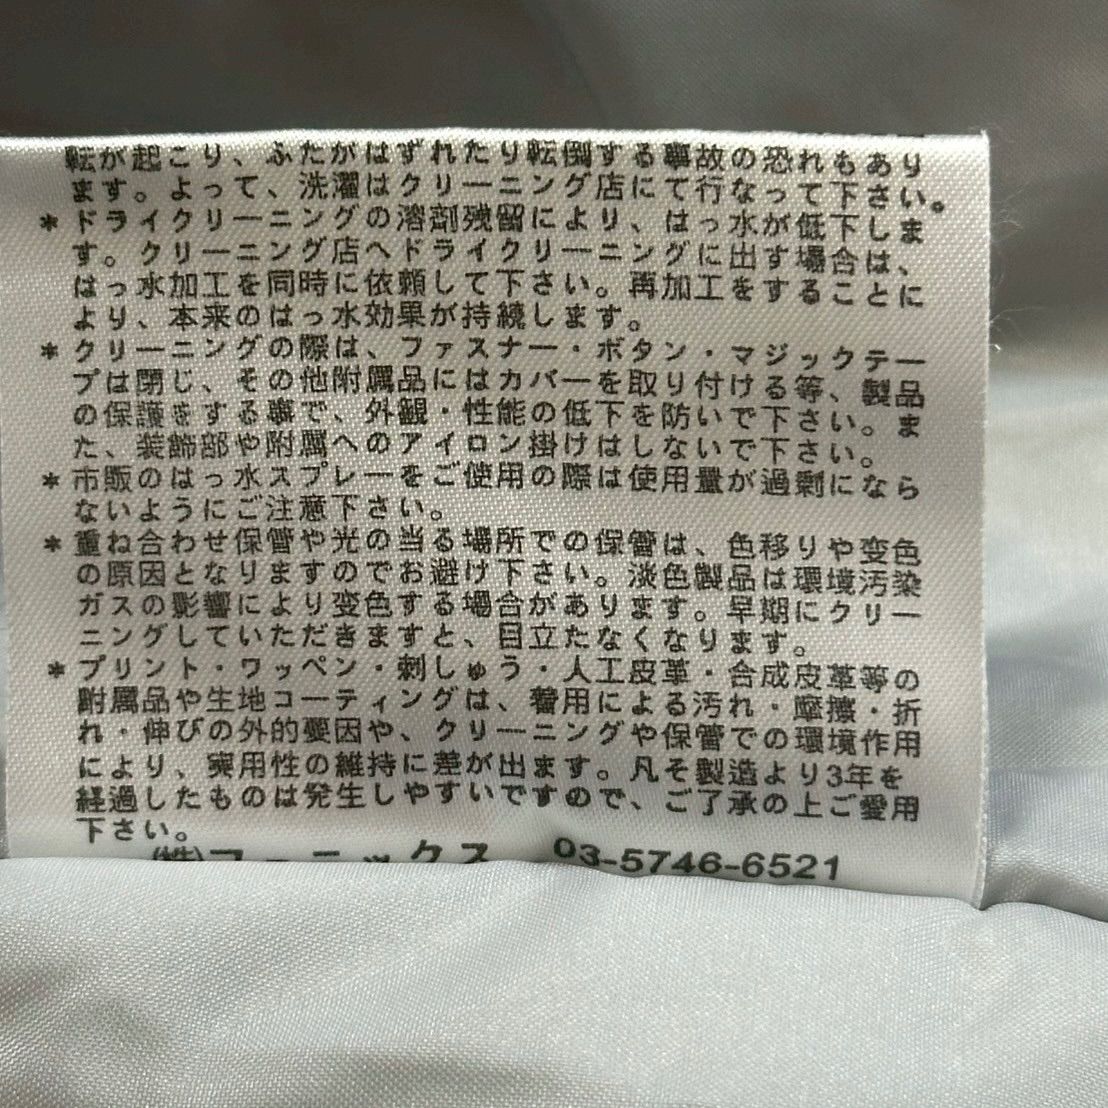 転が起こり、ふたがはずれたり転倒する事故の恐れもあり
ます。よって、洗濯はクリーニング店にて行なって下さい。
* ドライクリーニングの溶剤残留により、はっ水が低下しま
す。クリーニング店へドライクリーニングに出す場合は、
はっ水加工を同時に依頼して下さい。再加工をすることに
より、本来のはっ水効果が持続します。
* クリーニングの際は、ファスナー・ボタン・マジックテー
プは閉じ、その他附属品にはカバーを取り付ける等、製品
の保護をする事で、外観・性能の低下を防いで下さい。ま
た、装飾部や附属へのアイロン掛けはしないで下さい。
* 市販のはっ水スプレーをご使用の際は使用量が過剰になら
ないようにご注意下さい。
* 重ね合わせ保管や光の当る場所での保管は、色移りや変色
の原因となりますのでお避け下さい。淡色製品は環境汚染
ガスの影響により変色する場合があります。早期にクリー
ニングしていただきますと、目立たなくなります。
* プリント・ワッペン・刺しゅう・人工皮革・合成皮革等の
附属品や生地コーティングは、着用による汚れ・摩擦・折
れ・伸びの外的要因や、クリーニングや保管での環境作用
により、実用性の維持に差が出ます。凡そ製造より3年を
経過したものは発生しやすいですので、ご了承の上ご愛用
下さい。
(株)フェニックス 03-5746-6521